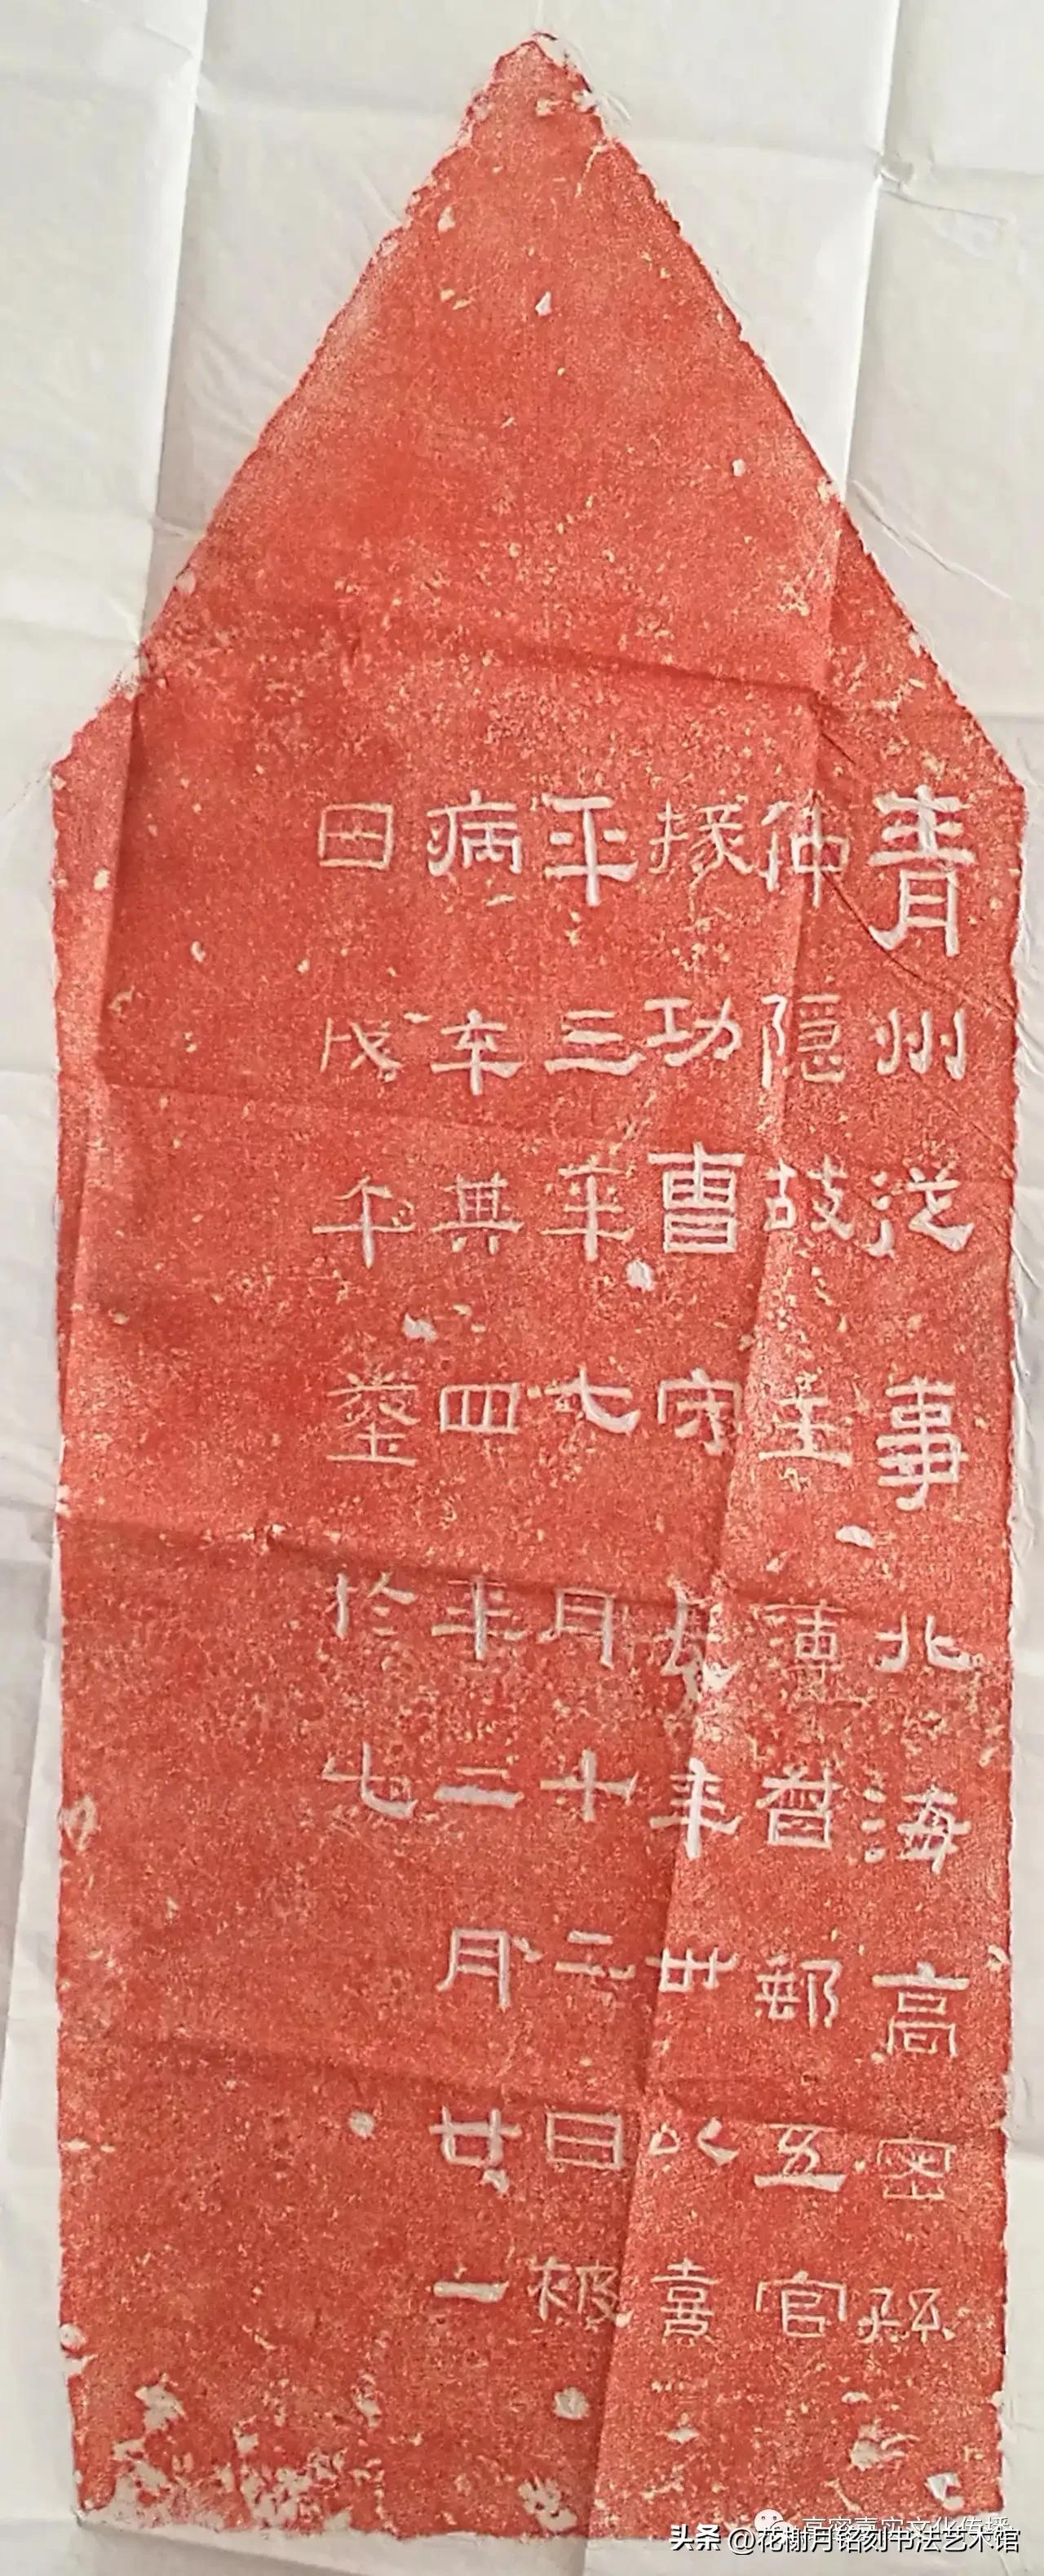 青州從事北海高密孫
仲隱故主簿督郵五官
掾功曹守長年卅以熹
平三年七月十二日被
病卒其四年二月廿一
日戊午塟於七
头条 @花榭月铭刻书法艺术馆